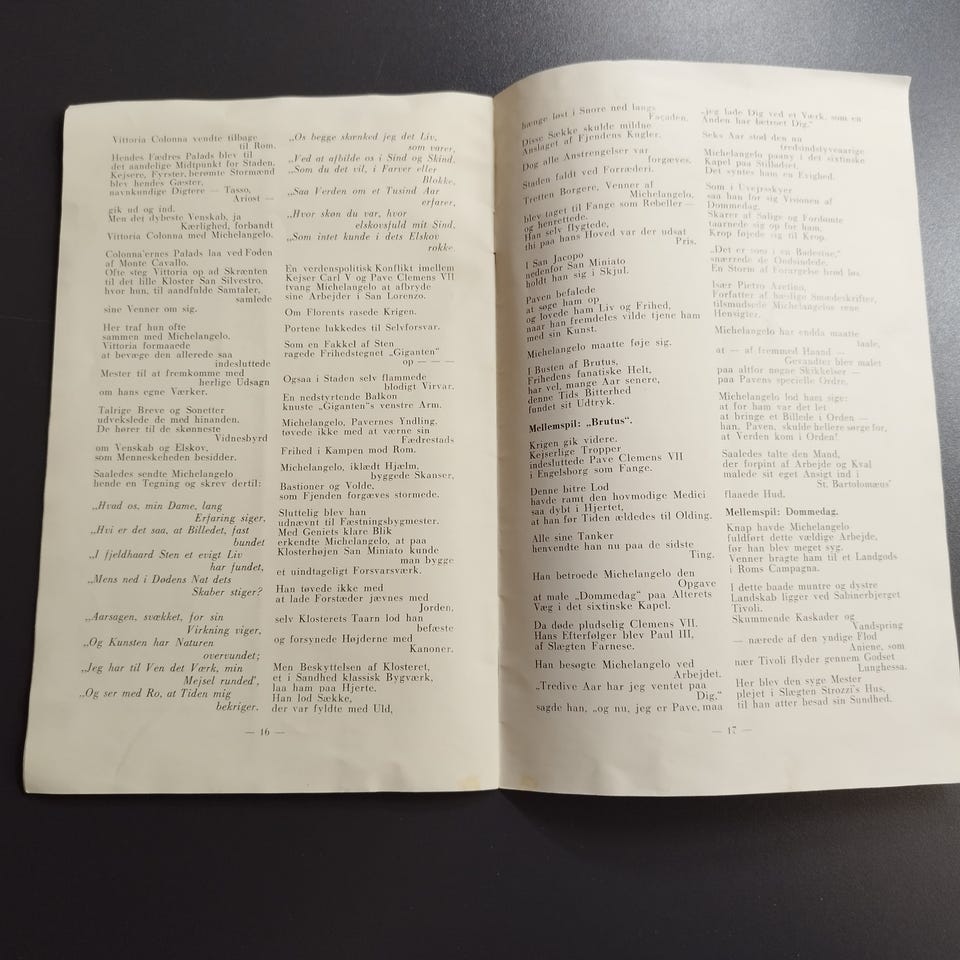 Vittoria Colonna vendte tilbage
til Rom.
Hendes Fædres Palads blev til
det aandelige Midtpunkt for Staden.
Kejsere, Fyrster, berømte Stormænd
blev hendes Gæster,
navnkundige Digtere — Tasso,
Ariost —
gik ud og ind.
Men det dybeste Venskab, ja
Kærlighed, forbandt
Vittoria Colonna med Michelangelo.
Colonna'ernes Palads laa ved Foden
af Monte Cavallo.
Ofte steg Vittoria op ad Skrænten
til det lille Kloster San Silvestro,
hvor hun, til aandfulde Samtaler,
samlede
sine Venner om sig.
Her traf hun ofte
sammen med Michelangelo.
Vittoria formaaede
at bevæge den allerede saa
indesluttede
Mester til at fremkomme med
herlige Udsagn
om hans egne Værker.
Talrige Breve og Sonetter
udvekslede de mod hinanden.
De hører til de skønneste
Vidnesbyrd
om Venskab og Elskov,
som Menneskeheden besidder.
Saaledes sendte Michelangelo
hende en Tegning og skrev dertil:
„Hvad os, min Dame, lang
Erfaring siger,
„Hvi er det saa, at Billedet, fast
bundet
„I fjeldhaard Sten et evigt Liv
har fundet,
„Mens ned i Dødens Nat dets
Skaber stiger?
„Aarsagen, svækket, for sin
Virkning viger,
„Og Kunsten har Naturen
overvundet;
„Jeg har til Ven det Værk, min
Mejsel runded',
„Og ser med Ro, at Tiden mig
bekriger.
„Os begge skænked jeg det Liv,
som varer,
„Ved at afbilde os i Sind og Skind.
„Som du det vil, i Farver eller
Blokke,
„Saa Verden om et Tusind Aar
erfarer,
„Hvor skøn du var, hvor
elskovsfuld mit Sind,
„Som intet kunde i dets Elskov
rokke.
En verdenspolitisk Konflikt imellem
Kejser Carl V og Pave Clemens VII
tvang Michelangelo at afbryde
sine Arbejder i San Lorenzo.
Om Florents rasede Krigen.
Portene lukkedes til Selvforsvar.
Som en Fakkel af Sten
ragede Frihedstegnet „Giganten"
op — — —
Ogsaa i Staden selv flammede
blodigt Virvar.
En nedstyrtende Balkon
knuste „Giganten"s venstre Arm.
Michelangelo, Pavernes Yndling,
tøvede ikke med at værne sin
Fædrestads
Frihed i Kampen mod Rom.
Michelangelo, iklædt Hjælm,
byggede Skanser,
Bastioner og Volde,
som Fjenden forgæves stormede.
Sluttelig blev han
udnævnt til Fæstningsbygmester.
Med Geniets klare Blik
erkendte Michelangelo, at paa
Klosterhøjen San Miniato kunde
man bygge
et uindtageligt Forsvarsværk.
Han tøvede ikke med
at lade Forstæder jævnes med
Jorden,
selv Klosterets Taarn lod han
befæste
og forsynede Højderne med
Kanoner.
Men Beskyttelsen af Klosteret,
et i Sandhed klassisk Bygværk,
laa ham paa Hjerte.
Han lod Sække,
der var fyldte med Uld,
— 16 —
hænge løst i Snore ned langs
Façaden.
Disse Sække skulde mildne
Anslaget af Fjendens Kugler.
Dog alle Anstrengelser var
forgæves.
Staden faldt ved Forræderi.
Tretten Borgere, Venner af
Michelangelo,
blev taget til Fange som Rebeller —
og henrettede.
Han selv flygtede,
thi paa hans Hoved var der udsat
Pris.
I San Jacopo
nedenfor San Miniato
holdt han sig i Skjul.
Paven befalede
at søge ham op
og lovede ham Liv og Frihed,
naar han fremdeles vilde tjene ham
med sin Kunst.
Michelangelo maatte føje sig.
I Busten af Brutus,
Frihedens fanatiske Helt,
har vel, mange Aar senere,
denne Tids Bitterhed
fundet sit Udtryk.
Mellemspil: „Brutus".
Krigen gik videre.
Kejserlige Tropper
indesluttede Pave Clemens VII
i Engelsborg som Fange.
Denne bitre Lod
havde ramt den hovmodige Medici
saa dybt i Hjertet,
at han før Tiden ældedes til Olding.
Alle sine Tanker
henvendte han nu paa de sidste
Ting.
Han betroede Michelangelo den
Opgave
at male „Dommedag" paa Alterets
Væg i det sixtinske Kapel.
Da døde pludselig Clemens VII.
Hans Efterfølger blev Paul III,
af Slægten Farnese.
Han besøgte Michelangelo ved
Arbejdet.
„Tredive Aar har jeg ventet paa
Dig,"
sagde han, „og nu, jeg er Pave, maa
„jeg lade Dig ved et Værk, som en
Anden har betroet Dig."
Seks Aar stod den nu
tredsindstyveaarige
Michelangelo paany i det sixtinske
Kapel paa Stilladset.
Det syntes ham en Evighed.
Som i Uvejrsskyer
saa han for sig Visionen af
Dommedag.
Skarer af Salige og Fordømte
taarnede sig op for ham,
Krop føjede sig til Krop.
„Det er som i en Badestue,"
snærrede de Ondsindede.
En Storm af Forargelse brød løs.
Især Pietro Aretino,
Forfatter af hæslige Smædeskrifter,
tilsmudsede Michelangelos rene
Hensigter.
Michelangelo har endda maatte
taale,
at — af fremmed Haand —
Gevandter blev malet
paa altfor nøgne Skikkelser —
paa Pavens specielle Ordre.
Michelangelo lod ham sige:
at for ham var det let
at bringe et Billede i Orden —
han, Paven, skulde hellere sørge for,
at Verden kom i Orden!
Saaledes talte den Mand,
der forpint af Arbejde og Kval
malede sit eget Ansigt ind i
St. Bartolomæus'
flaaede Hud.
Mellemspil: Dommedag.
Knap havde Michelangelo
fuldført dette vældige Arbejde,
før han blev meget syg.
Venner bragte ham til et Landgods
i Roms Campagna.
I dette baade muntre og dystre
Landskab ligger ved Sabinerbjerget
Tivoli.
Skummende Kaskader og
Vandspring
— nærede af den yndige Flod
Aniene, som
nær Tivoli flyder gennem Godset
Lunghessa.
Her blev den syge Mester
plejet i Slægten Strozzi's Hus,
til han atter besad sin Sundhed.
— 17 —